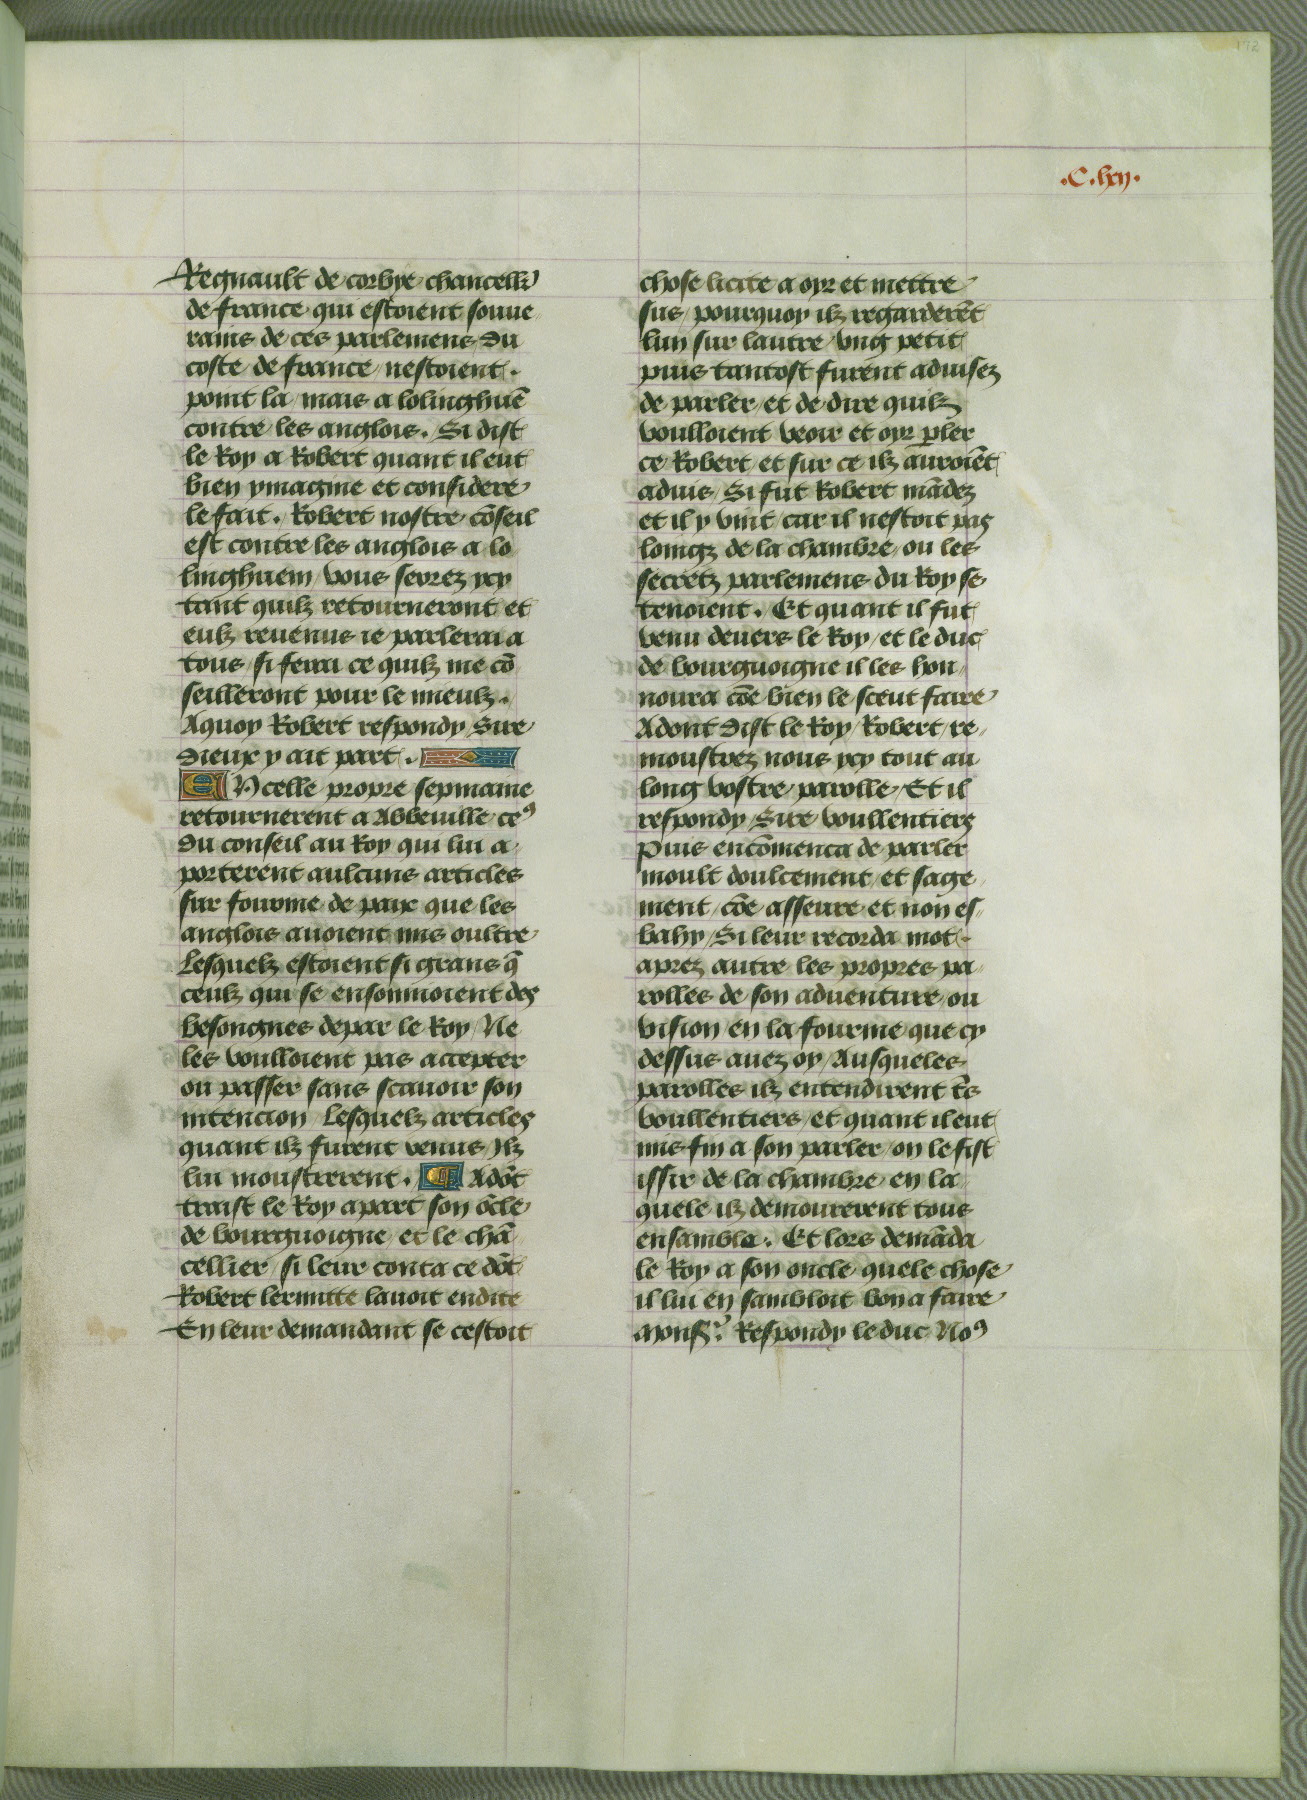 .C.lxij.
Regnault de corbye chancell̃r
de france qui estoient souue
rains de ces parlemens du
coste de france nestoient
point la / mais a lolinghuẽ
contre les anglois. Si dist
le Roy a Robert quant il eut
bien ymagine et considere
le fait. Robert nostre cõseil
est contre les anglois a lo
linghuem / vous serez ycy
tant quilz retourneront et
eulz reuenus ie parlerai a
tous / si ferai ce quilz me cõ
seilleront pour le mieulz.
Aquoy Robert respondy / Sire
dieux y ait part.
EN ycelle propre sepmaine
retournerent a Abbeuille ceꝰ
du conseil au Roy qui lui a
porterent aulcuns articles
sur fourme de paix que les
anglois auoient mis oultre
Lesquelz estoient si grans q̃
ceulz qui se ensonnioient des
besongnes depar le Roy / Ne
les voulloient pas accepter
ou passer sans scauoir son
intencion / Lesquelz articles
quant ilz furent venus / Ilz
lui moustrerent. ¶ Adõt
traist le Roy apart son õcle
de bourguoigne et le chã
cellier / si leur conta ce dõt
Robert lermitte lauoit endite
En leur demandant se cestoit
chose licite a oyr et mettre
sus / pourquoy ilz regarderẽt
lun sur lautre vng petit
puis tantost furent aduisez
de parler / et de dire quilz
voulloient veoir et oyr ꝑler
ce Robert / et sur ce ilz auroiẽt
aduis / Si fut Robert mãdez
et il y vint / car il nestoit pas
loingz de la chambre / ou les
secretz parlemens du Roy se
tenoient. Et quant il fut
venu deuers le Roy / et le duc
de bourguoigne il les hon
noura cõe bien le sceut faire
Adont dist le Roy / Robert / re
moustrez nous ycy tout au
long vostre parolle / Et il
respondy / Sire voullentiers
Puis encõmenca de parler
moult doulcement / et sage
ment / cõe asseure et non es
bahy / Si leur recorda mot
aprez autre les propres pa
rolles de son aduenture / ou
vision / en la fourme que cy
dessus auez oy / Ausqueles
parolles ilz entendirent tr̃s
voullentiers / et quant il eut
mis fin a son parler / on le fist
issir de la chambre / en la
quele ilz demourerent tous
ensamble. Et lors demãda
le Roy a son oncle / quele chose
il lui en sambloit bon a faire
Monsr̃. Respondy le duc Noꝰ